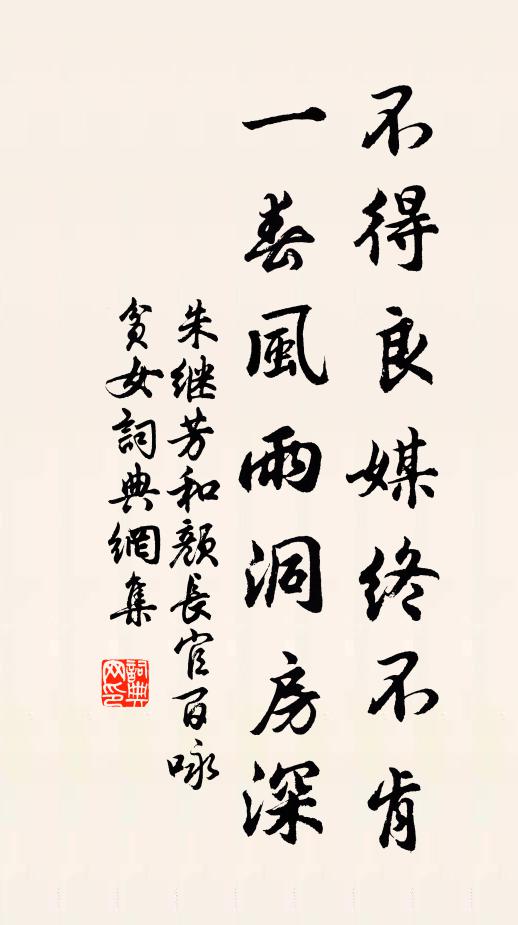 不得良媒終不肯
一春風雨洞房深
朱继芳和顏長官百咏
貧女詞典網集
詞典
网印